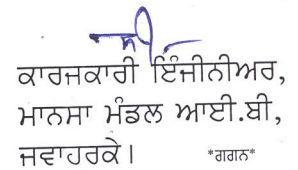 ਕਾਰਜਕਾਰੀ ਇੰਜੀਨੀਅਰ,
ਮਾਨਸਾ ਮੰਡਲ ਆਈ.ਬੀ,
ਜਵਾਹਰਕੇ। *ਗਗਨ*